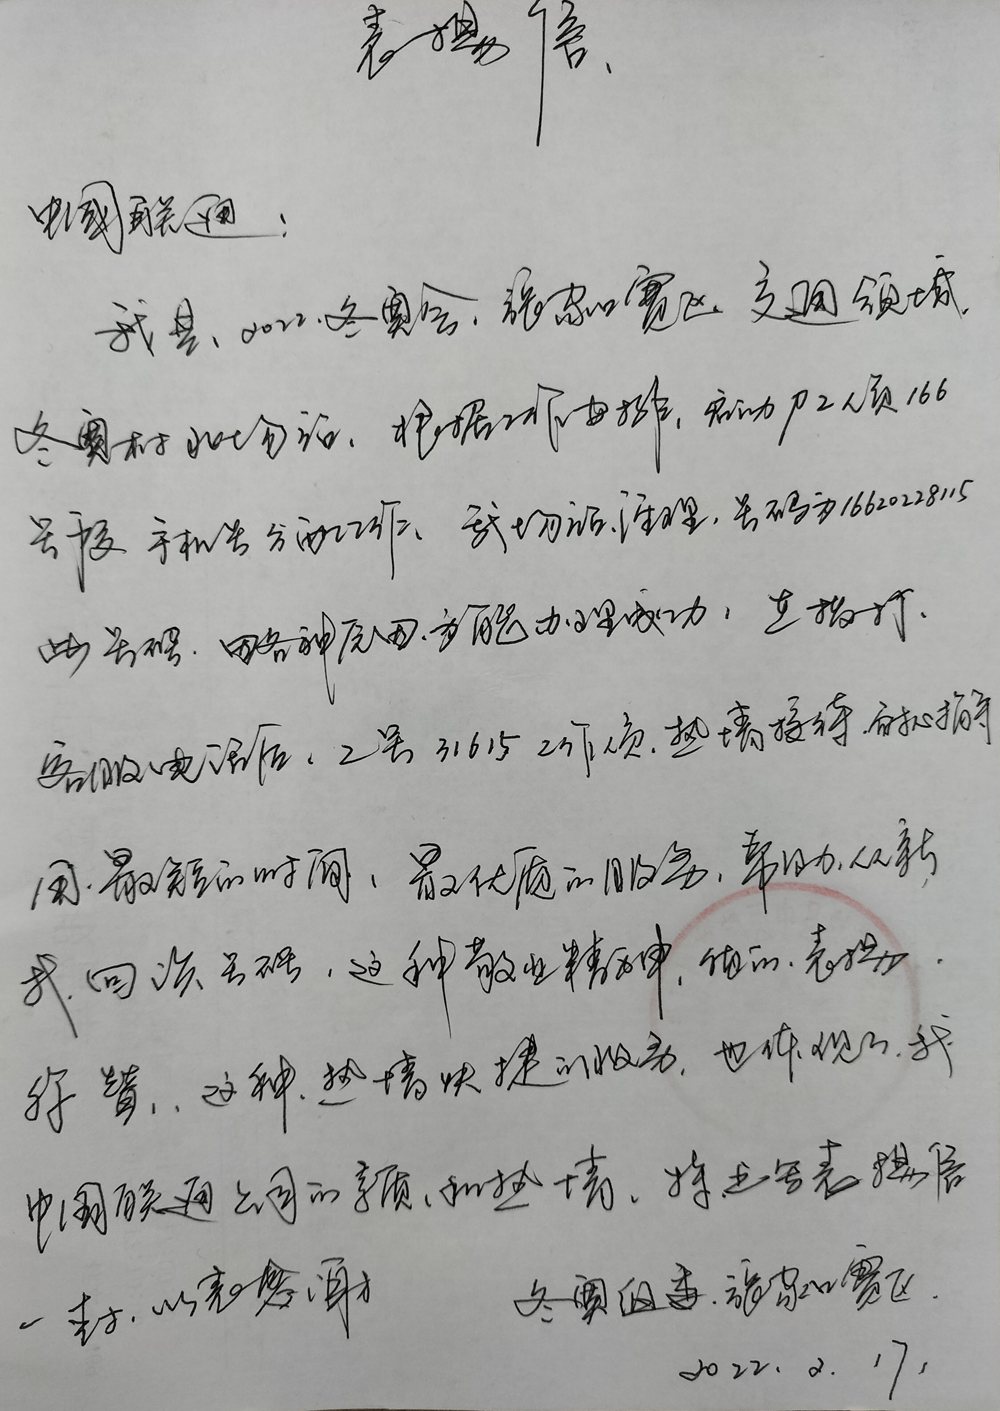 表扬信
中国联通:
我是2022.冬奥会,张家口赛区.交通领域.
冬奥村 场站.根据工作安排,启动 工作人员166
号段手机号分配工作、我场站经理,号码为16620228115
此号码.因各种原因.未能办理成功,在拨打.
客服电话后、工号31615工作人员.热情接待.耐心指导
用.最短的时间,最优质的服务,帮助.从新
我.回 号码,这种敬业精神,值的.表扬.
称赞,.这种.热情快捷的服务,也体现了.我.
中国联通公司的素质、和热情、特此写表扬信
一封.以表答谢 冬奥组委.张家口赛区.
2022.2.17.